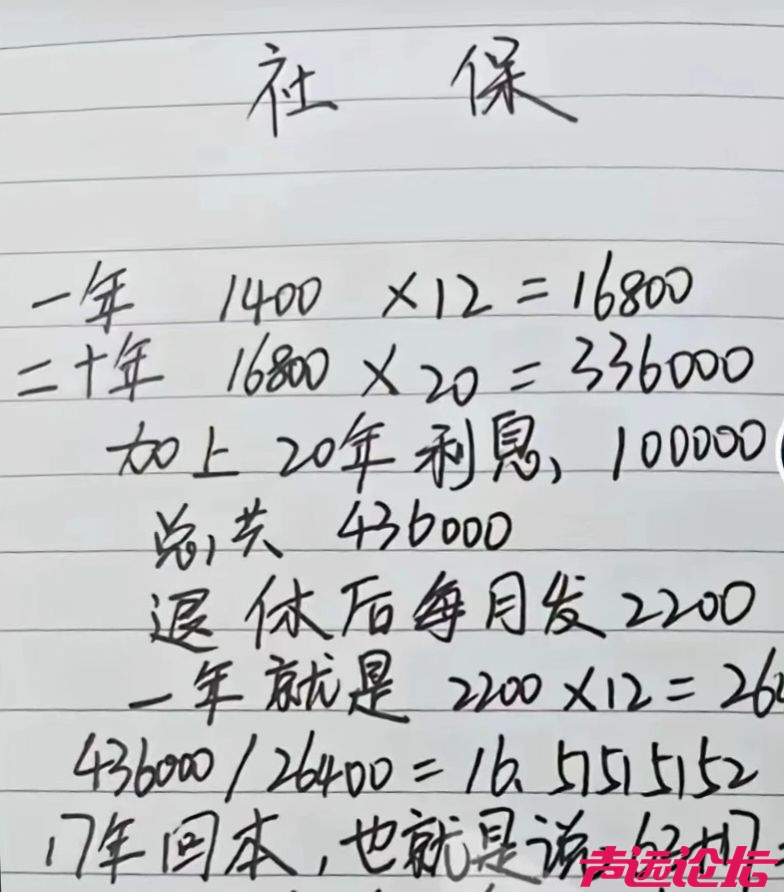 社 保
一年 1400 ×12 = 16800
二十年 16800 × 20 = 336000
加上 20年利息, 100000
总共 436000
退休后每月发 2200
一年就是 2200 ×12 = 26
436000 / 26400 = 16.51515152
17年回本,也就是说 63+17
声远论坛